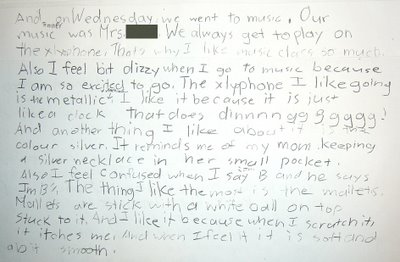 And on Wednesday, we went to music, Our
music teacher was Mrs. We always get to play on
the xlyphone. Thats why I like music class so much.
Also I feel bit dizzy when I go to music because
I am so excited to go. The xlyphone I like going
is the metallic I like it because it is just
like a clock that does dinnnngggggggg!
And another thing I like about it is the
colour silver. It reminds me of my mom keeping
a silver necklace in her small pocket.
Also I feel confused when I say B and he says
Im B%. The thing I like the most is the mallets.
Mallets are stick with a white ball on top
stuck to it. And I like it because when I scratch it,
it itches me. And when I feel it it is soft and
a bit smooth.